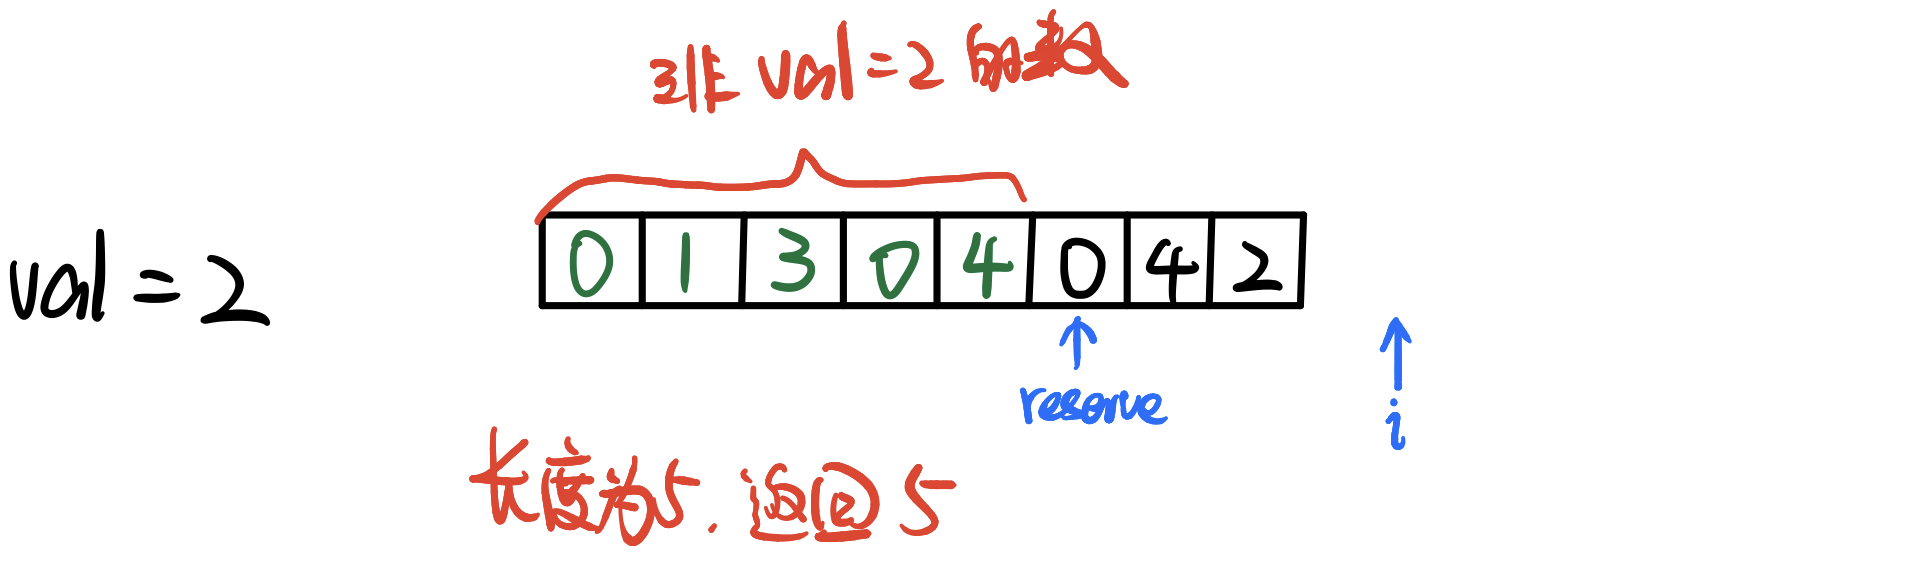 非 val=2 的数
val=2
0 1 3 0 4 0 4 2
reserve
i
长度为5. 返回5